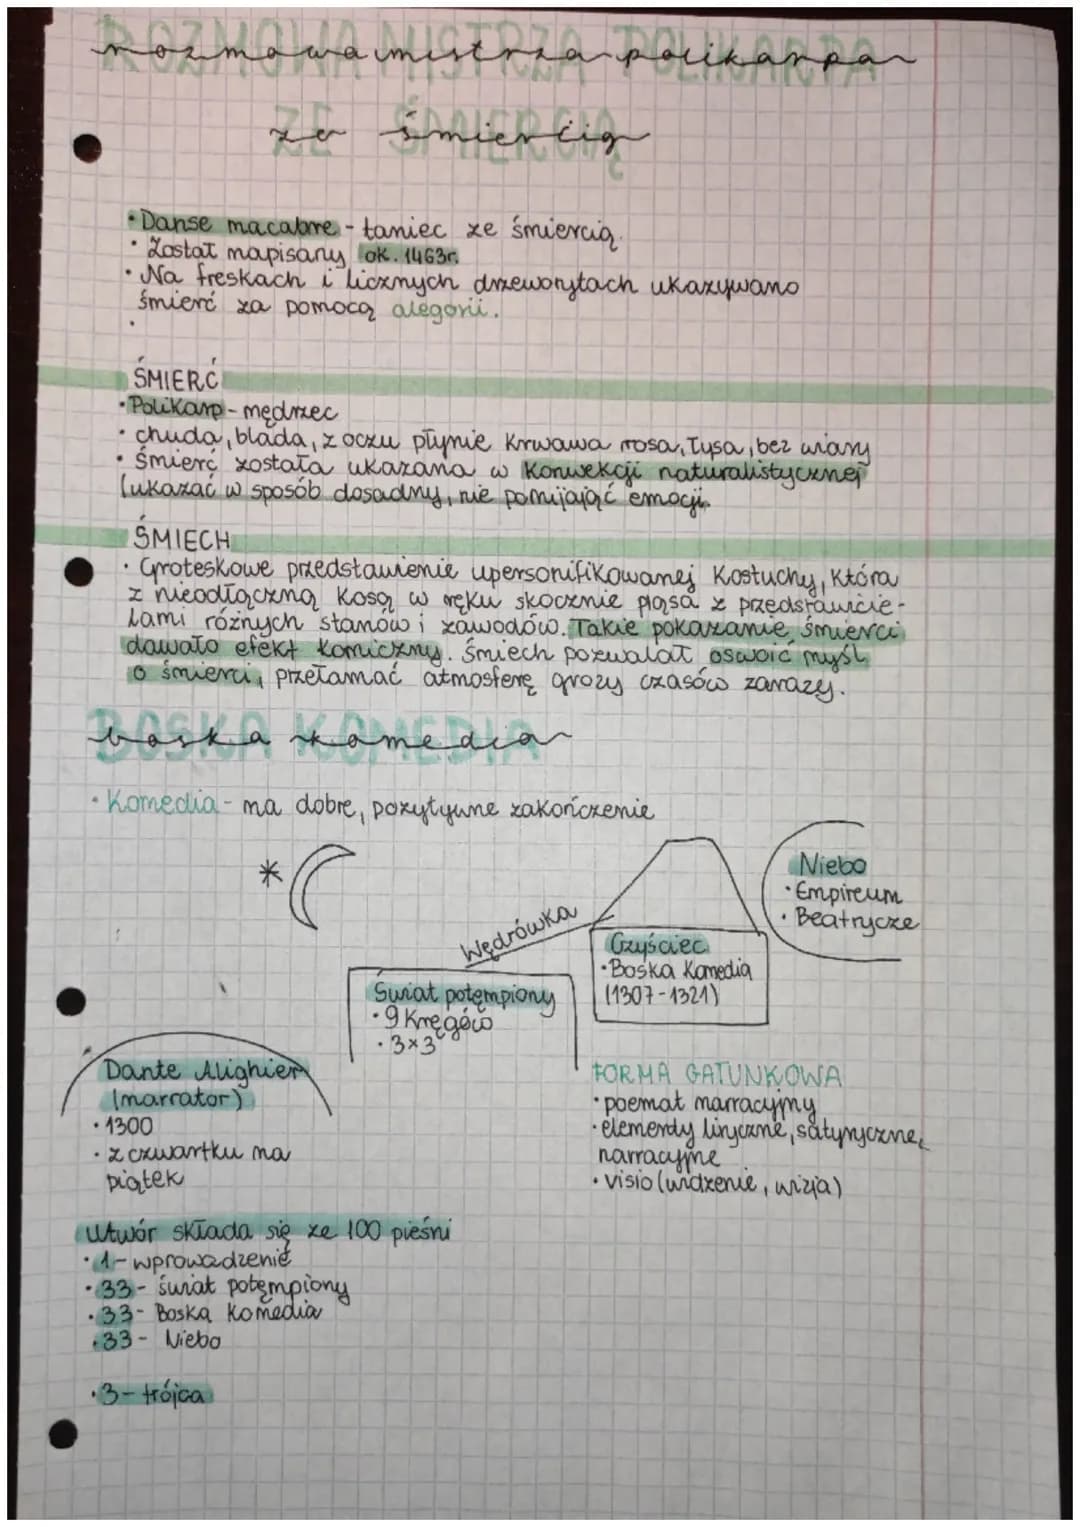 ROZMOWA MISTRZA POLIKARPA
rozmowa mistrza polikarpa
ZE ŚMIERCIĄ
ze śmiercią
• Danse macabre - taniec ze śmiercią.
• Został napisany ok. 1463r.
• Na freskach i licznych drzeworytach ukazywano
śmierć za pomocą alegorii.
•
ŚMIERĆ
• Polikarp - mędrzec
• chuda, blada, z oczu płynie krwawa rosa, łysa, bez wiary
• Śmierć została ukazana w konwekcji naturalistycznej
(ukazać w sposób dosadny, nie pomijając emocji.
ŚMIECH
• Groteskowe przedstawienie upersonifikowanej Kostuchy, która
z nieodłączną kosą w ręku skocznie pląsa z przedstawicie-
lami różnych stanów i zawodów. Takie pokazanie śmierci
dawało efekt komiczny. Śmiech pozwalał oswoić myśl
o śmierci, przełamać atmosferę grozy czasów zarazy.
BOSKA KOMEDIA
boska komedia
• Komedia - ma dobre, pozytywne zakończenie
Niebo
• Empireum
• Beatrycze
Wędrówka
Czyściec
• Boska Komedia
(1307-1321)
Świat potępiony
• 9 Kręgów
• 3×3
Dante Alighier
(narrator)
• 1300
• z czwartku na
piątek
FORMA GATUNKOWA
• poemat narracyjny
• elementy liryczne, satyryczne,
narracyjne
• visio (widzenie, wizja)
Utwór składa się ze 100 pieśni
• 1 - wprowadzenie
• 33 - świat potępiony
• 33 - Boska Komedia
• 33 - Niebo
• 3 - trójca